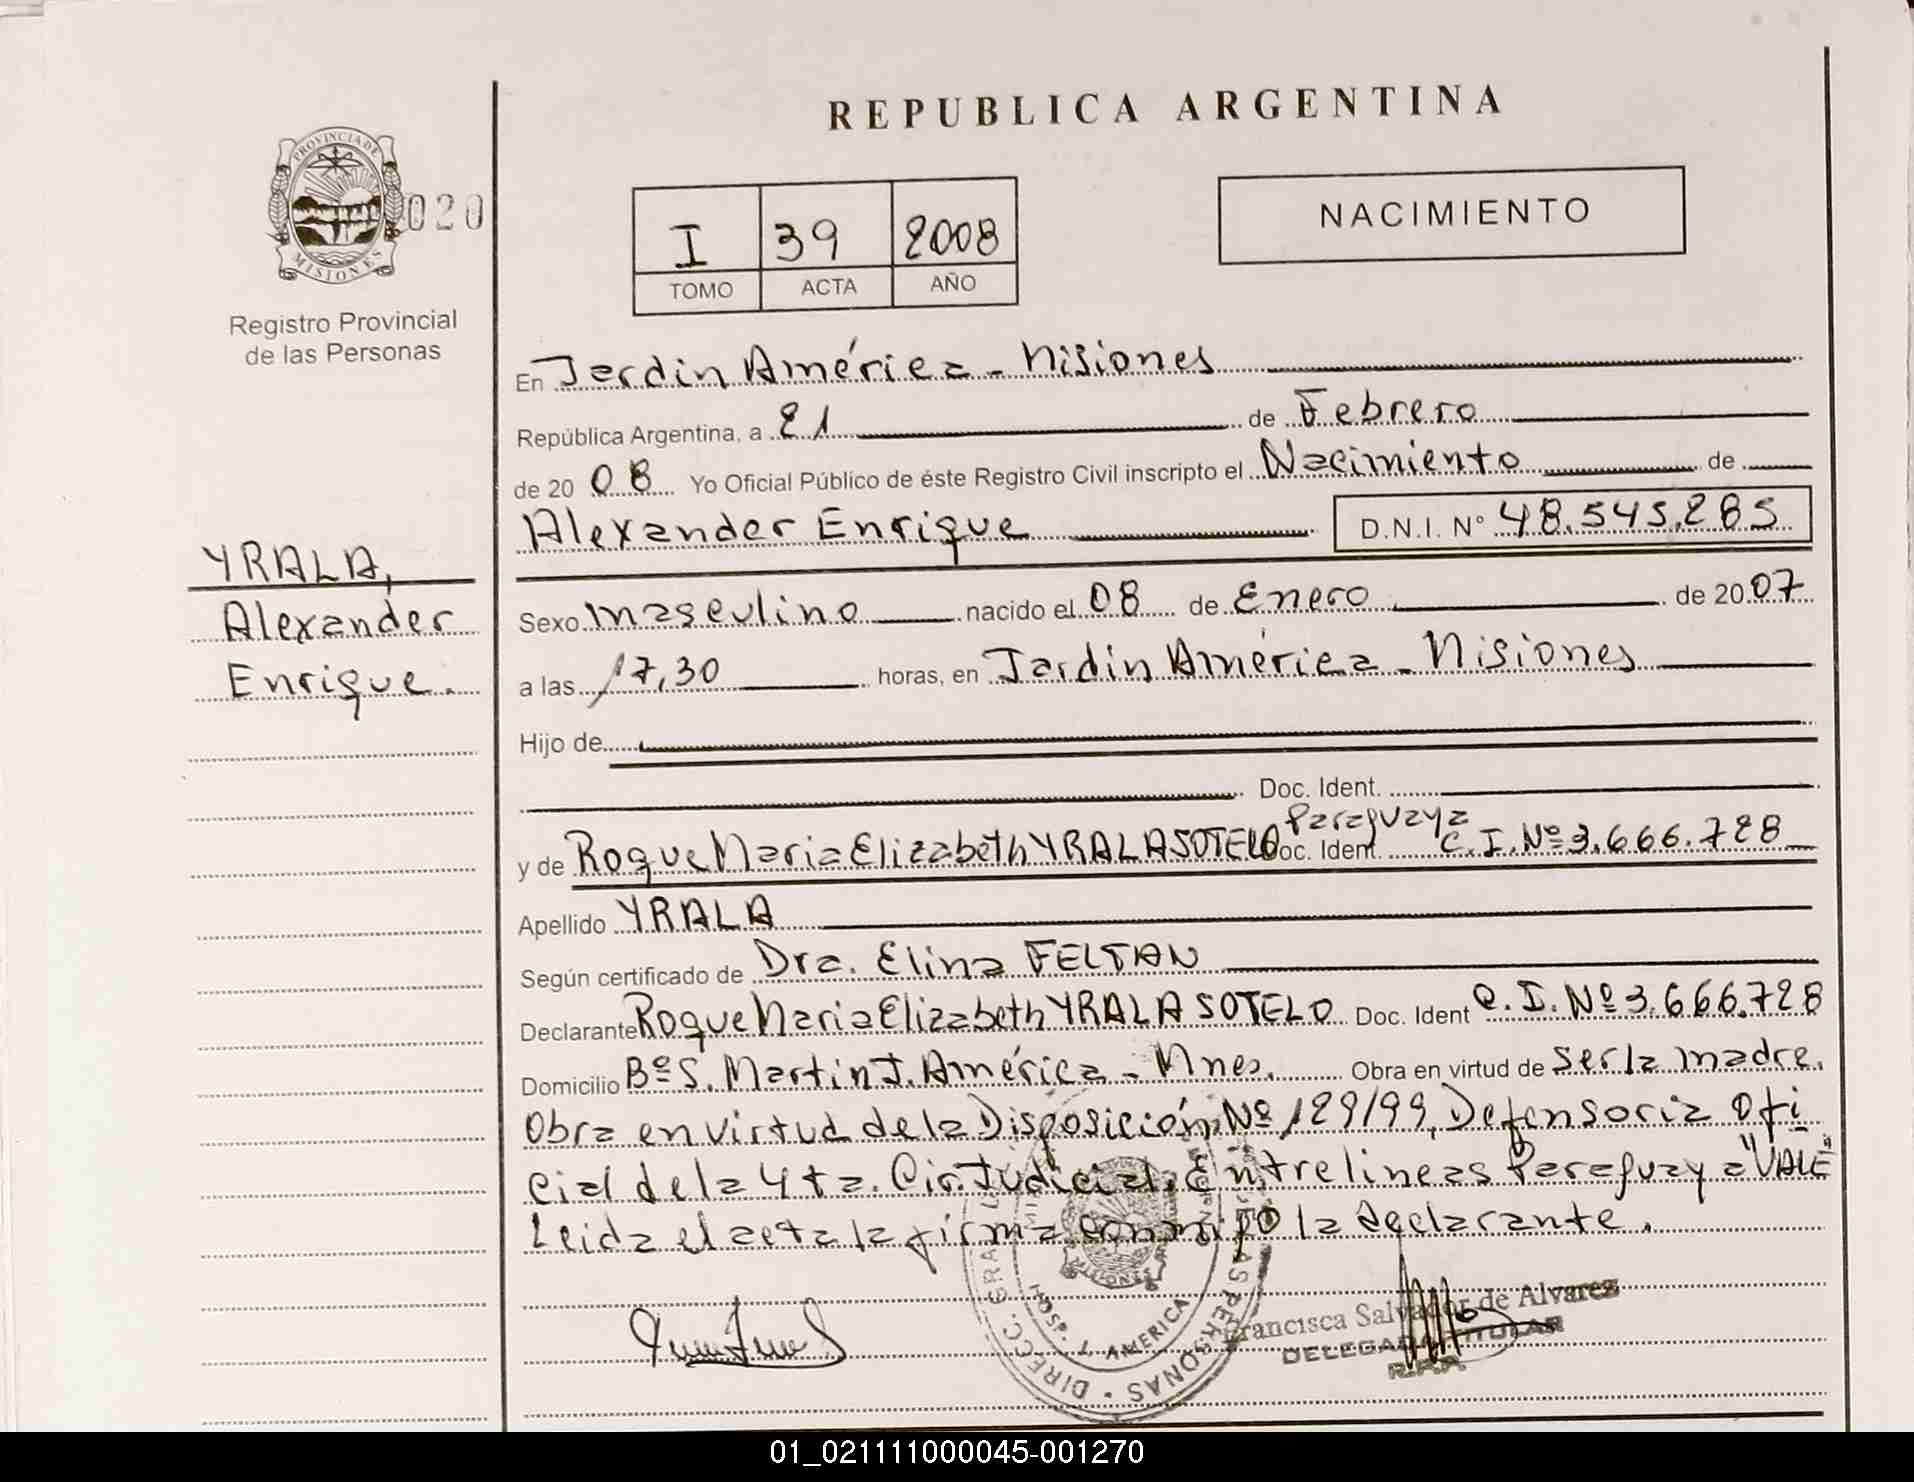 REPUBLICA ARGENTINA
PROVINCIA DE
MISIONES
020
Registro Provincial
de las Personas
I 39 2008
TOMO ACTA AÑO
NACIMIENTO
En Jardin América - Misiones
República Argentina, a 21 de Febrero
de 20 08 Yo Oficial Público de éste Registro Civil inscripto el Nacimiento de
Alexander Enrique D.N.I. N° 48.545.285
YRALA,
Alexander
Enrique.
Sexo masculino nacido el 08 de Enero de 20 07
a las 17,30 horas, en Jardin América - Misiones
Hijo de
Doc. Ident.
Paraguaya
y de Roque Maria Elizabeth YRALA SOTELO Doc. Ident. C.I. Nº 3.666.728
Apellido YRALA
Según certificado de Dra. Elina FELTAN
Declarante Roque Maria Elizabeth YRALA SOTELO Doc. Ident C.I. Nº 3.666.728
Domicilio Bº S. Martin J. América - Mnes. Obra en virtud de ser la madre.
Obra en virtud de la Disposición Nº 129/99, Defensoria Ofi
cial de la 4ta. Cir. Judicial. Entrelineas Paraguaya "VALE"
Leida el acta la firma conmigo la declarante.
HOSP. J. AMERICA
DIRECC. GRAL PERSONAS
Francisca Salvador de Alvarez
DELEGADA TITULAR
R.P.P.
01_021111000045-001270